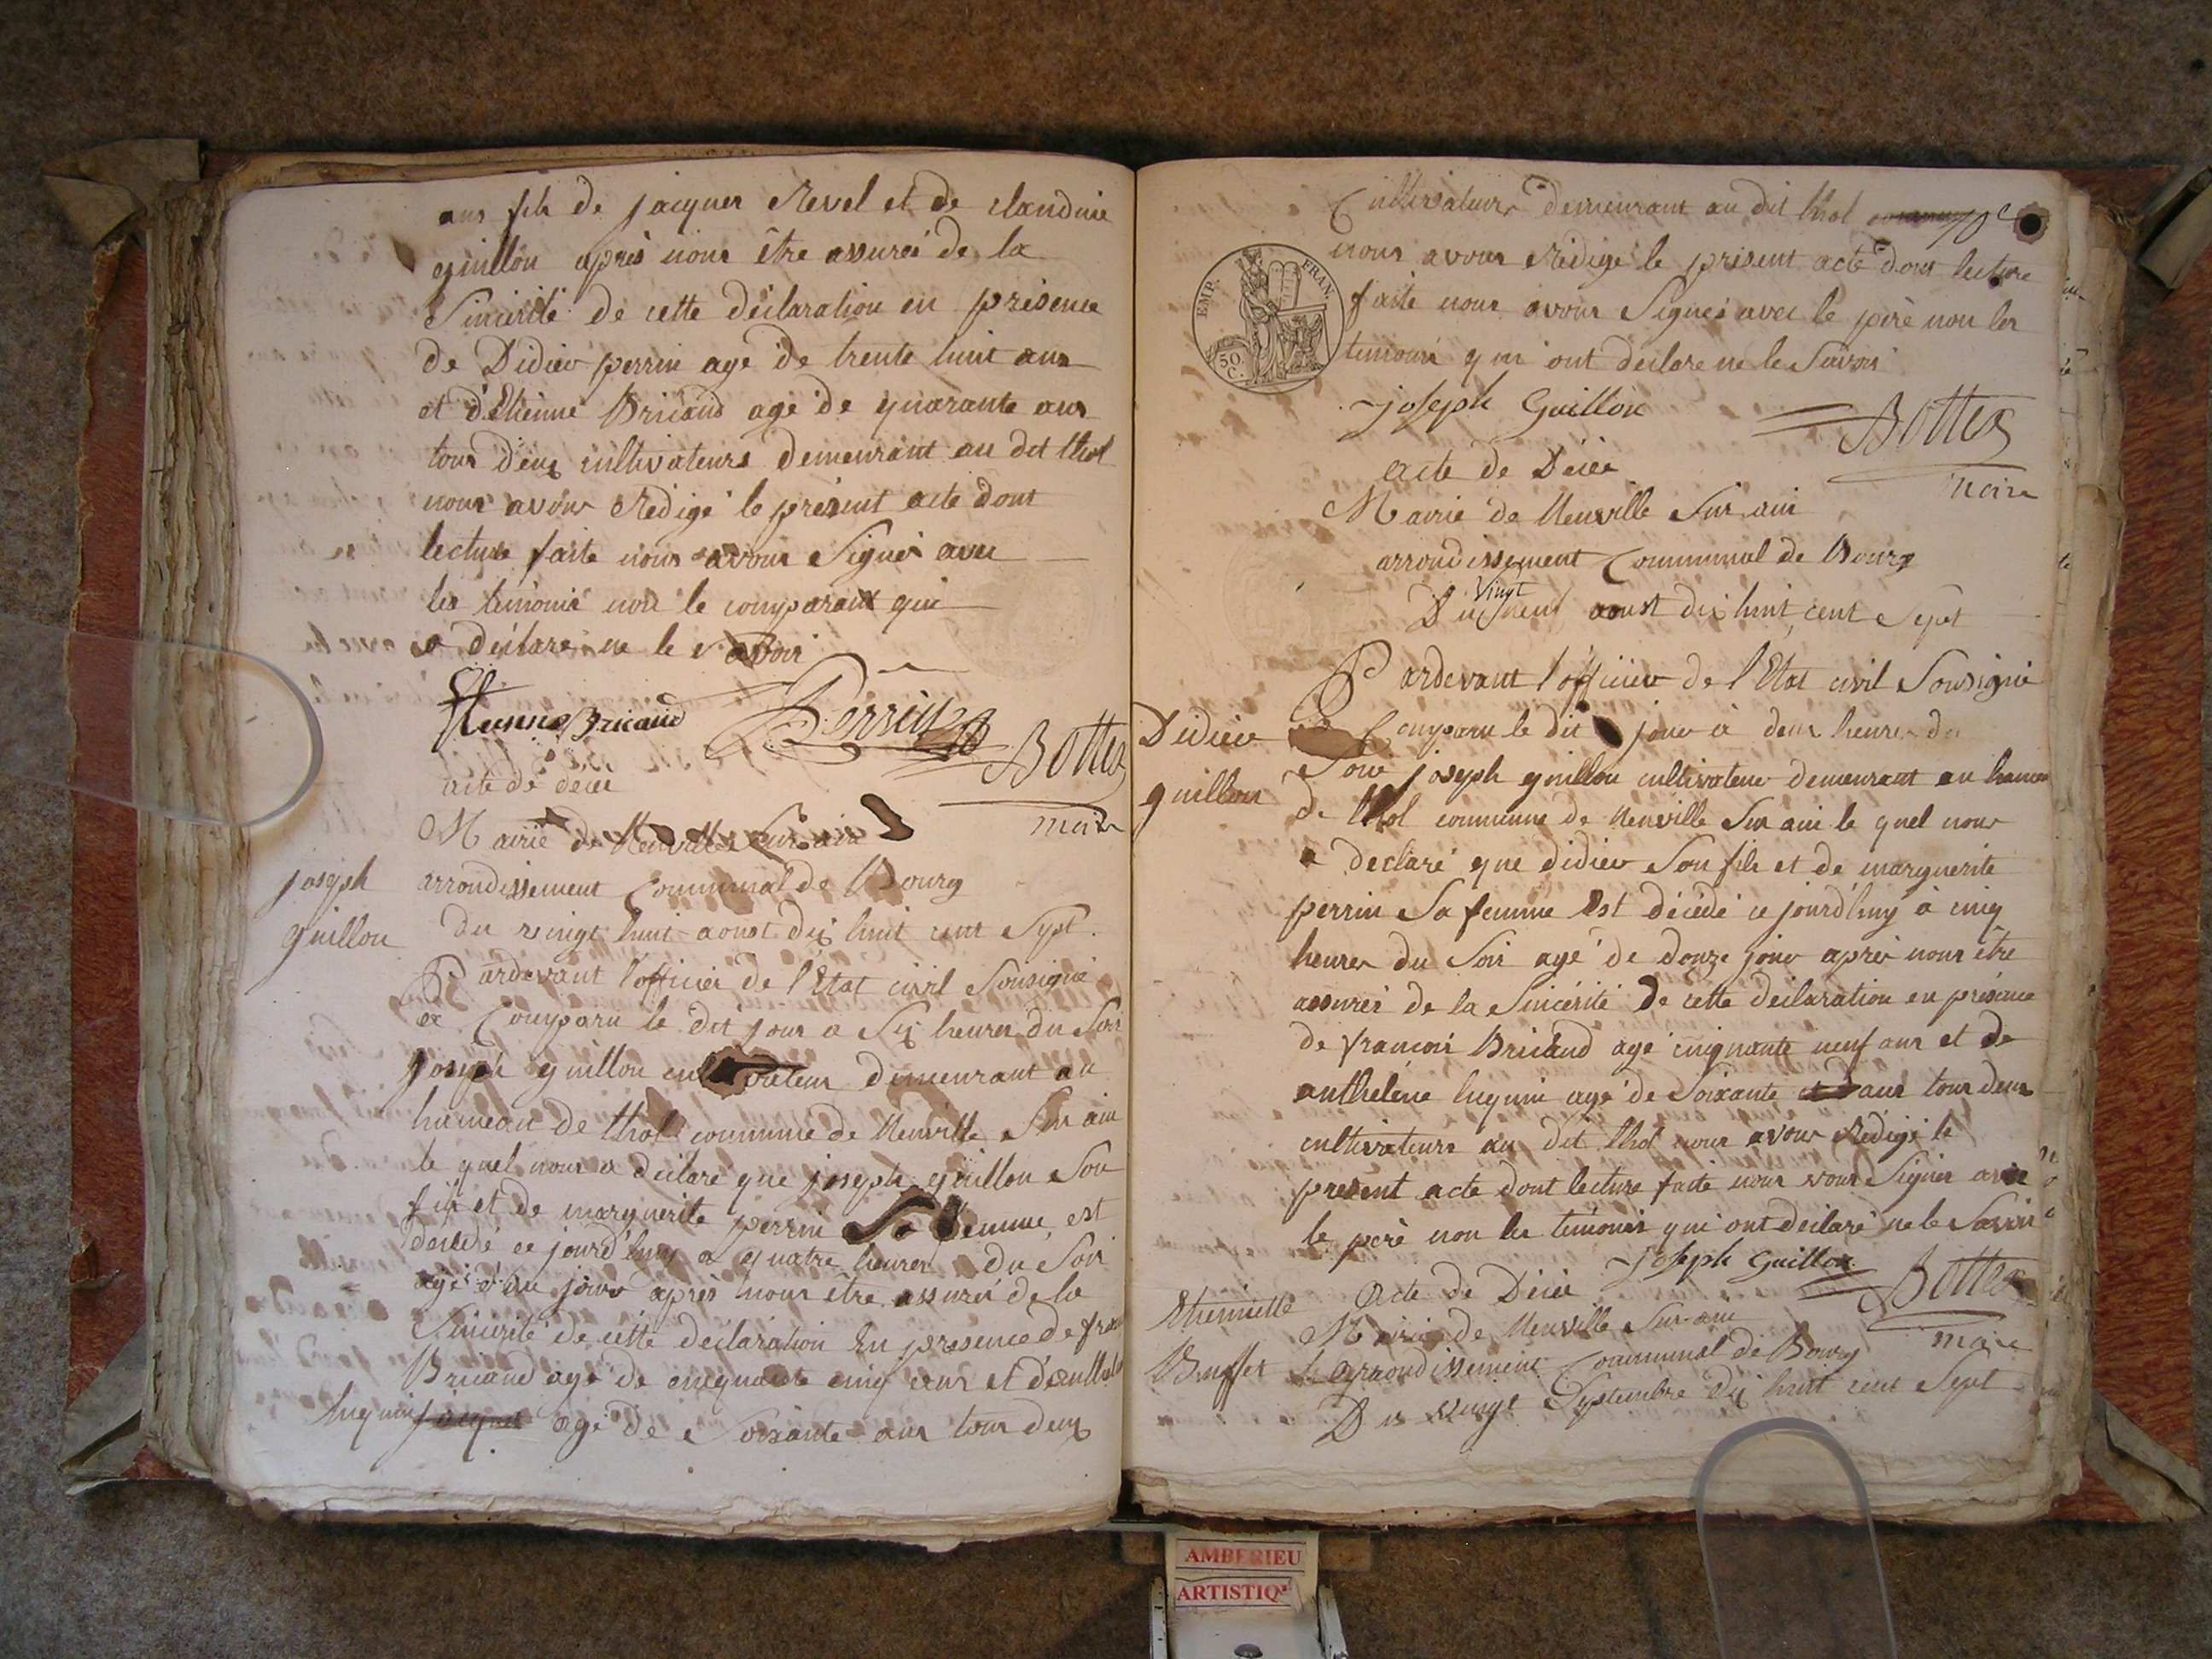 ans fils de jacques Revel et de claudine
guillon après nous être assurés de la
Sincérité de cette déclaration en présence
de Didier perrin agé de trente huit ans
et d'Etienne Bricaud agé de quarante ans
tous deux cultivateurs demeurant au dit thol
nous avons Rédigé le présent acte dont
lecture faite nous avons Signés avec
les témoins non le comparant qui
a déclaré ne le savoir
Etienne Bricaud Perrin Bottex
maire
acte de décès
Mairie de Neuville Sur ain
joseph
guillon
arrondissement Communal de Bourg
du vingt huit aoust dix huit cent Sept.
Pardevant l'officier de l'Etat civil Sousigné
a Comparu le dit jour a Six heures du Soir
joseph guillon cultivateur demeurant au
hameau de thol commune de Neuville Sur ain
le quel nous a déclaré que joseph guillon Son
fils et de marguerite perrin Sa femme est
décédé ce jourd'huy a quatre heures du Soir
agé d' jours après nous être assurés de la
Sincérité de cette déclaration En présence de
Bricaud agé de cinquante cinq ans et
agé de Soixante ans tous deux
Cultivateurs demeurant au dit thol
nous avons Rédigé le présent acte dont lecture
faite nous avons Signés avec le père non les
témoins qui ont déclaré ne le Savoir
EMP. FRAN.
50 C.
joseph Guillon Bottex
maire
acte de Décès
Mairie de Neuville Sur ain
arrondissement Communal de Bourg
Du vingt neuf aoust dix huit cent Sept
Pardevant l'officier de l'Etat civil Sousigné
Didier
guillon
a Comparu le dit jour à deux heures du
Soir joseph guillon cultivateur demeurant au hameau
de thol commune de Neuville Sur ain le quel nous
a declaré que didier Son fils et de marguerite
perrin Sa femme Est décédé ce jourd'huy à cinq
heures du Soir agé de douze jour après nous être
assurés de la Sincérité de cette déclaration en présence
de françois Bricaud agé cinquante neuf ans et de
anthelme agé de Soixante ans tous deux
cultivateurs au dit thol nous avons Rédigé le
présent acte dont lecture faite nous vons Signés avec
le père non les témoins qui ont déclaré ne le Savoir
joseph Guillon Bottex
maire
Acte de Décès
Mairie de Neuville Sur ain
Buffet
arrondissement Communal de Bourg
Du vingt Septembre dix huit cent Sept
AMBERIEU
ARTISTIQ